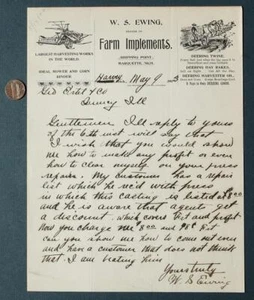 W. S. EWING,
DEALER IN
Farm Implements,
SHIPPING POINT,
MARQUETTE, NEB.
LARGEST HARVESTING WORKS
IN THE WORLD.
IDEAL MOWER AND CORN
BINDER
DEERING TWINE
DEERING HAY RAKES,
DEERING HARVESTER CO.,
May 9
& Co
Quincy Ill
Gentlemen In reply to yours
of the 6th inst will say that
I wish that you would show
me how to make any profit or even
how to clear myself on your press
repairs. My customer has a repair
list which he rec'd with press
in which this casting is listed at $8.00
and he is aware that agents get
a discount which covers frt and profit
Now you charge me 8.00 and 95¢ frt
can you show me how to come out even
and have a customer that does not think
that I am beating him
Yours truly
W. S. Ewing